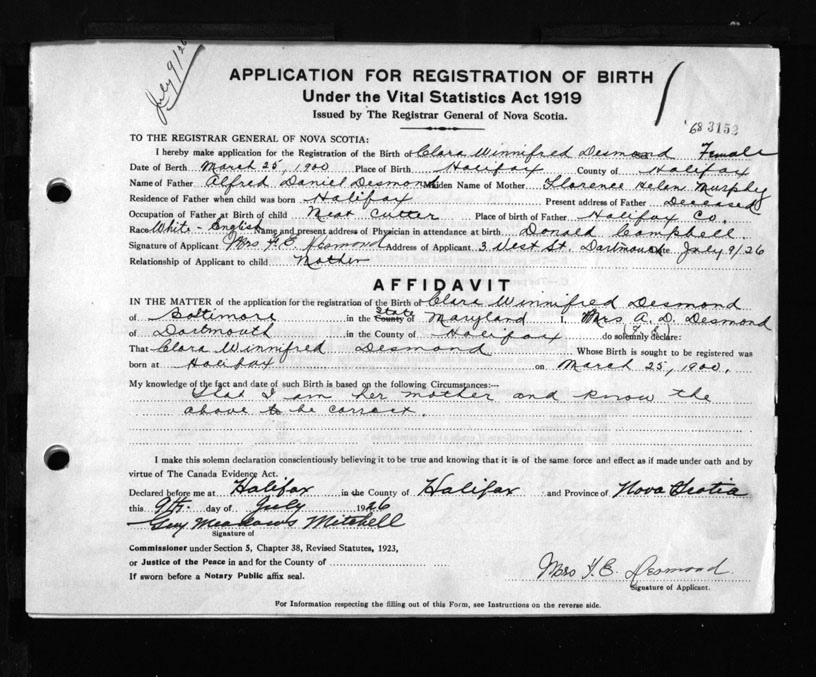 July 9/26
APPLICATION FOR REGISTRATION OF BIRTH
Under the Vital Statistics Act 1919
Issued by The Registrar General of Nova Scotia.
'68 3152
TO THE REGISTRAR GENERAL OF NOVA SCOTIA:
I hereby make application for the Registration of the Birth of Clara Winnifred Desmond Female
Date of Birth March 25, 1900 Place of Birth Halifax County of Halifax
Name of Father Alfred Daniel Desmond Maiden Name of Mother Florence Helan Murphy
Residence of Father when child was born Halifax Present address of Father Deceased
Occupation of Father at Birth of child Meat Cutter Place of birth of Father Halifax Co.
Race White - English Name and present address of Physician in attendance at birth Donald Campbell
Signature of Applicant Mrs F. E. Desmond Address of Applicant 3 West St. Dartmouth Date July 9/26
Relationship of Applicant to child Mother
AFFIDAVIT
IN THE MATTER of the application for the registration of the Birth of Clara Winnifred Desmond
of Baltimore in the County State of Maryland I, Mrs A. D. Desmond
of Dartmouth in the County of Halifax (F. E.) do solemnly declare:
That Clara Winnifred Desmond Whose Birth is sought to be registered was
born at Halifax on March 25, 1900.
My knowledge of the fact and date of such Birth is based on the following Circumstances:—
That I am her mother and know the
above to be correct.
I make this solemn declaration conscientiously believing it to be true and knowing that it is of the same force and effect as if made under oath and by
virtue of The Canada Evidence Act.
Declared before me at Halifax in the County of Halifax and Province of Nova Scotia
this 9th day of July 1926
Guy Meadows Mitchell
Signature of
Commissioner under Section 5, Chapter 38, Revised Statutes, 1923,
or Justice of the Peace in and for the County of
If sworn before a Notary Public affix seal.
Mrs F. E. Desmond
Signature of Applicant.
For Information respecting the filling out of this Form, see Instructions on the reverse side.